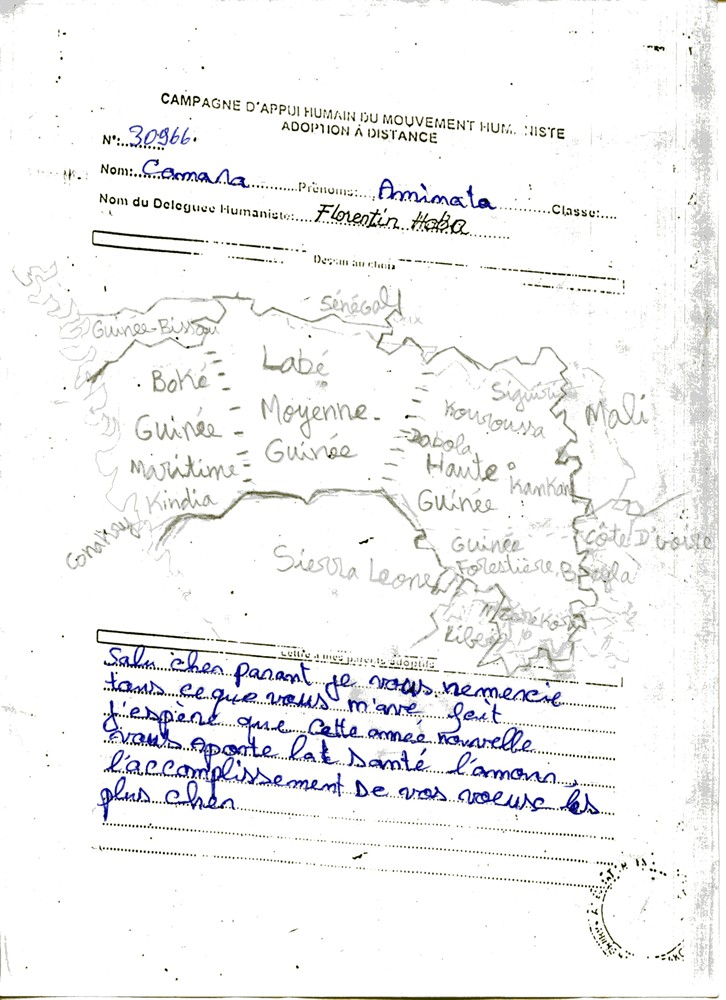 CAMPAGNE D'APPUI HUMAIN DU MOUVEMENT HUM. NISTE
ADOPTION À DISTANCE
N°:..30966.
Nom:..Camara..........Prénoms:..Aminata..........Classe:....
Nom du Deleguée Humaniste:....Florentin Haba..........
Dessin au choix
Sénégal
Guinée-Bissau
Labé
Boké
Siguiri
Mali
Moyenne-
Kouroussa
Guinée
Dabola
Guinée
Maritime
Haute
Kankan
Kindia
Guinée
Conakry
Côte D'voire
Guinée
Sierra Leone
Forestière
Nzérékoré
Libéria
Lettre à mes parents adoptifs
Salu cher parant je vous remercie
tous ce que vous m'avé fait
J'espère que cette année nouvelle
vous aporte la santé l'amour,
l'accomplissement De vos voeux les
plus cher